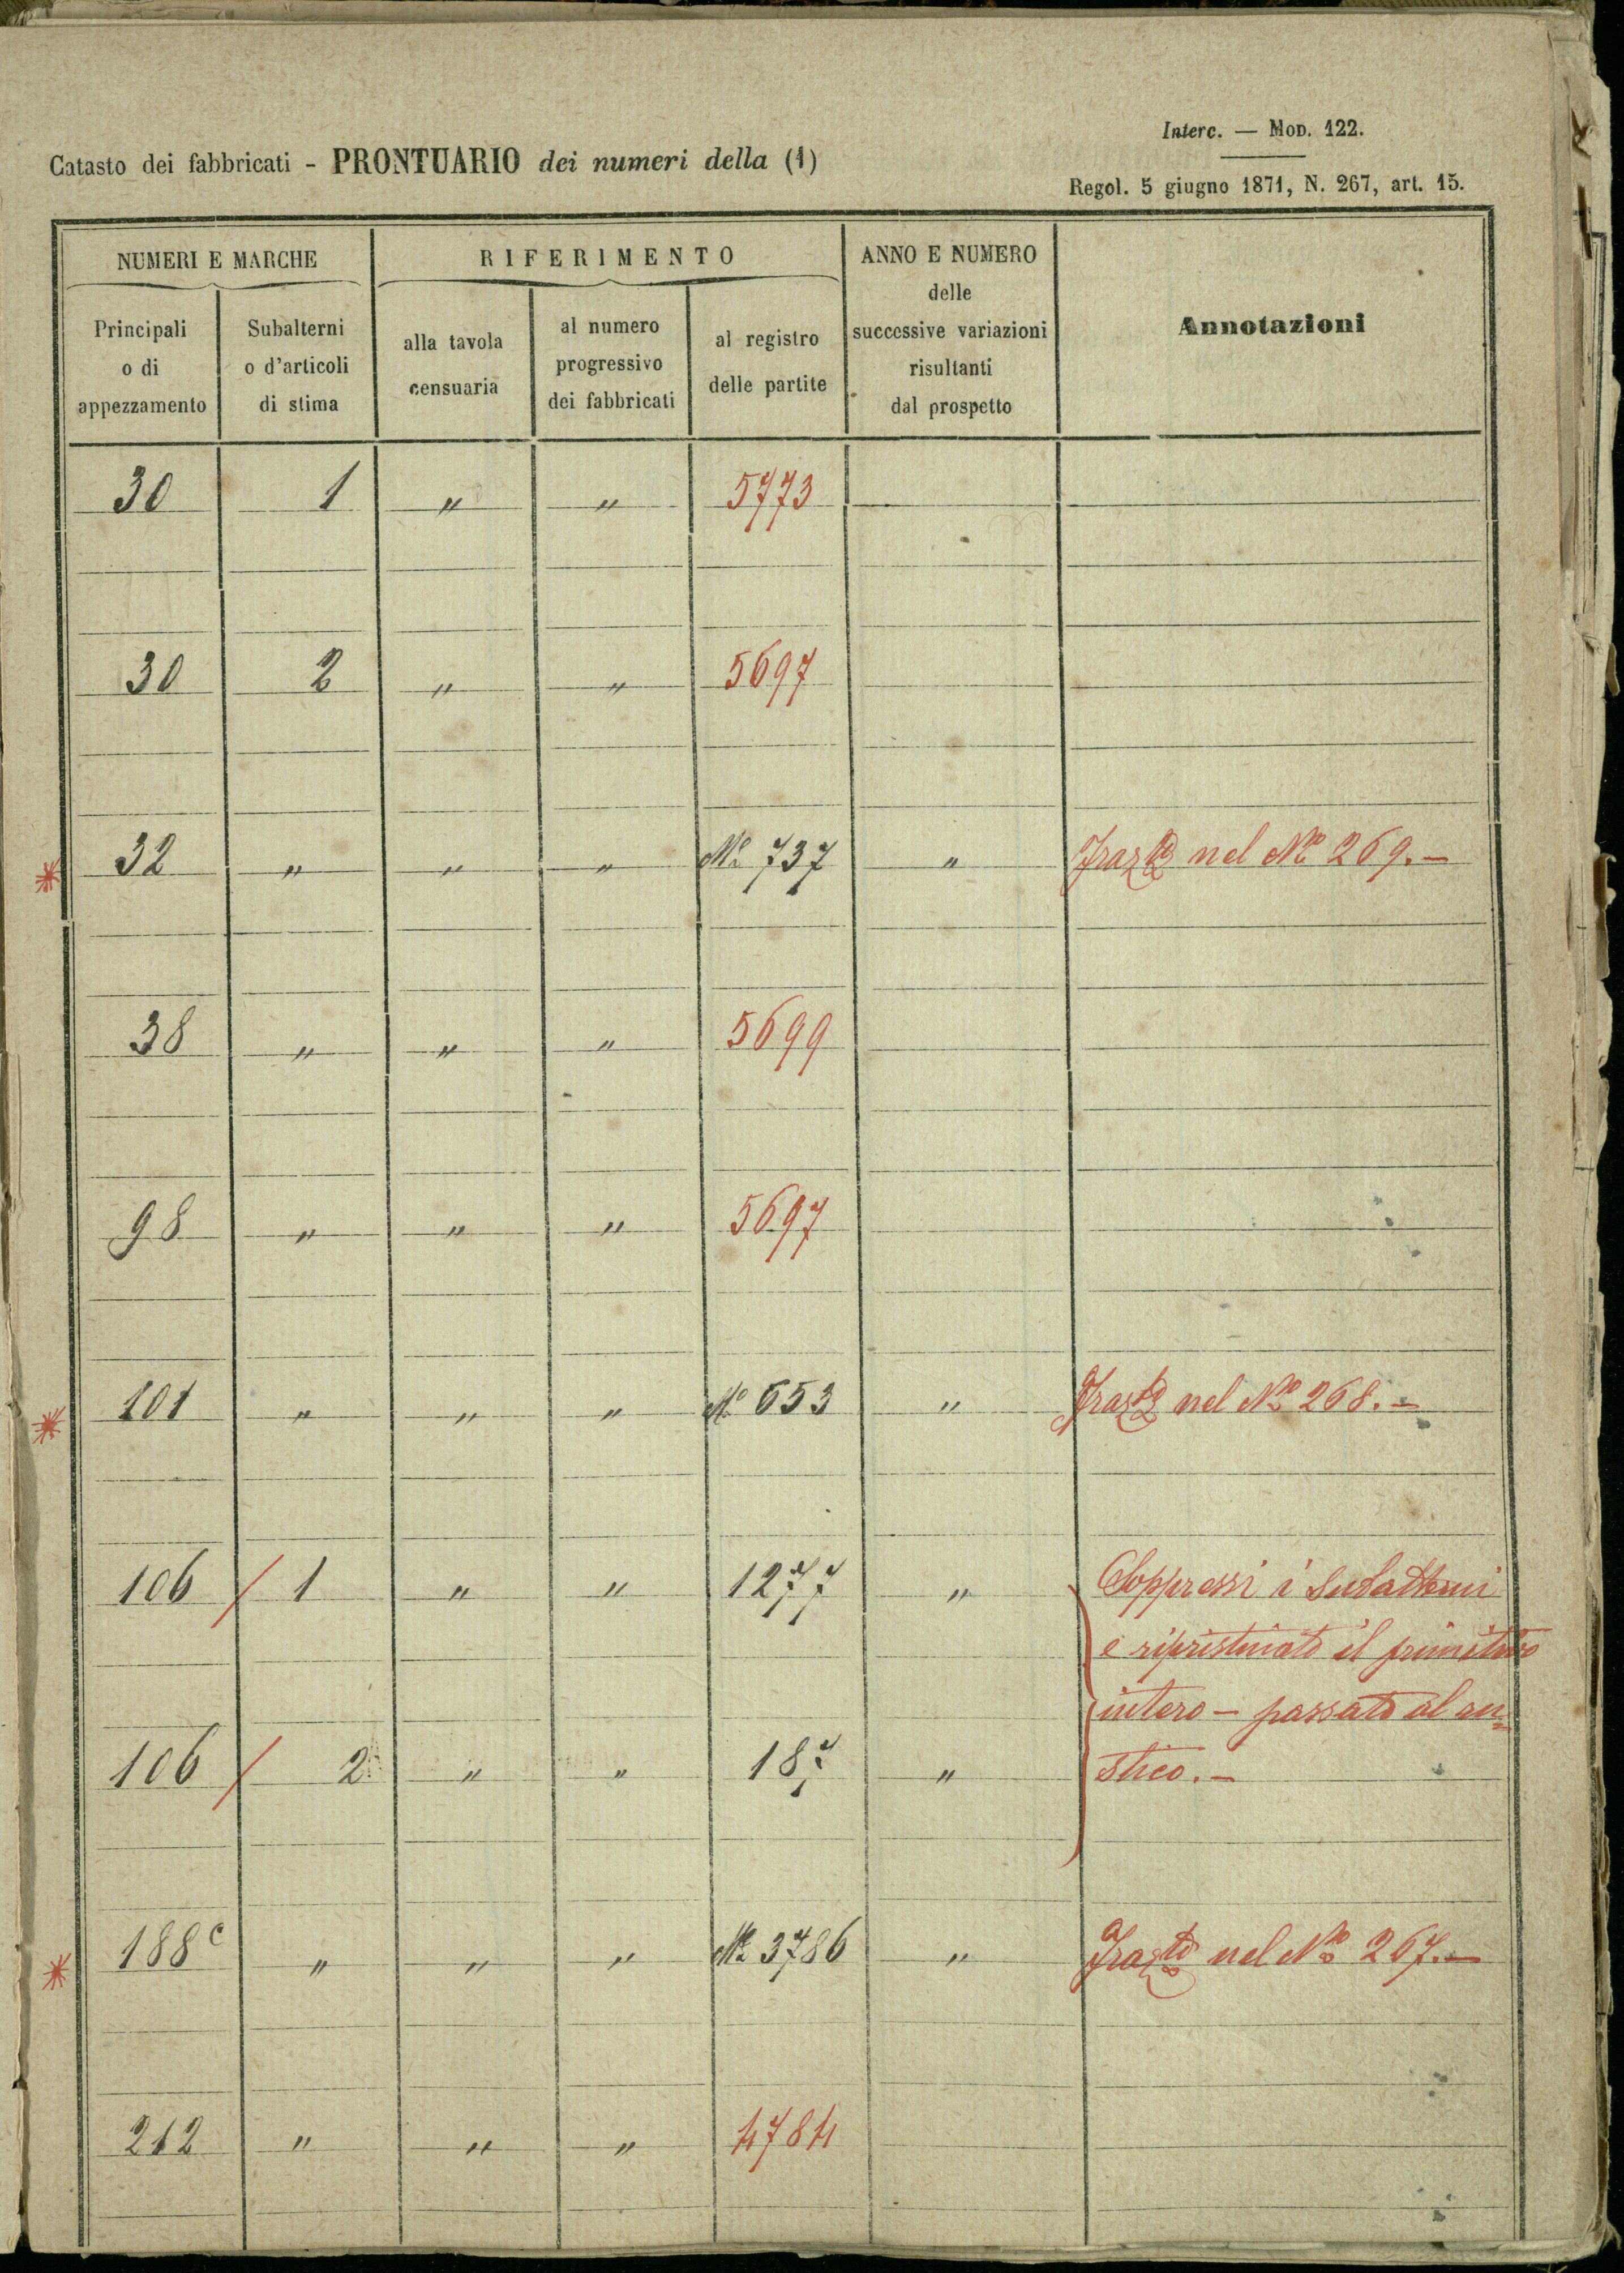 Interc. — Mod. 122.
Catasto dei fabbricati - PRONTUARIO dei numeri della (1)
Regol. 5 giugno 1871, N. 267, art. 15.
NUMERI E MARCHE
RIFERIMENTO
ANNO E NUMERO
delle
successive variazioni
risultanti
dal prospetto
Annotazioni
Principali
o di
appezzamento
Subalterni
o d'articoli
di stima
alla tavola
censuaria
al numero
progressivo
dei fabbricati
al registro
delle partite
30 1 " " 5773
30 2 " " 5697
* 32 " " " No 737 " nel No 269.—
38 " " " 5699
98 " " " 5697
* 101 " " " No 653 " nel No 268.—
106 / 1 " " 1277 " Soppressi i subalterni
e ripristinato il primitivo
intero — passato al an=
106 / 2 " " 187 " stico.—
* 188c " " " No 3786 " nel No 267.—
212 " " " 4784